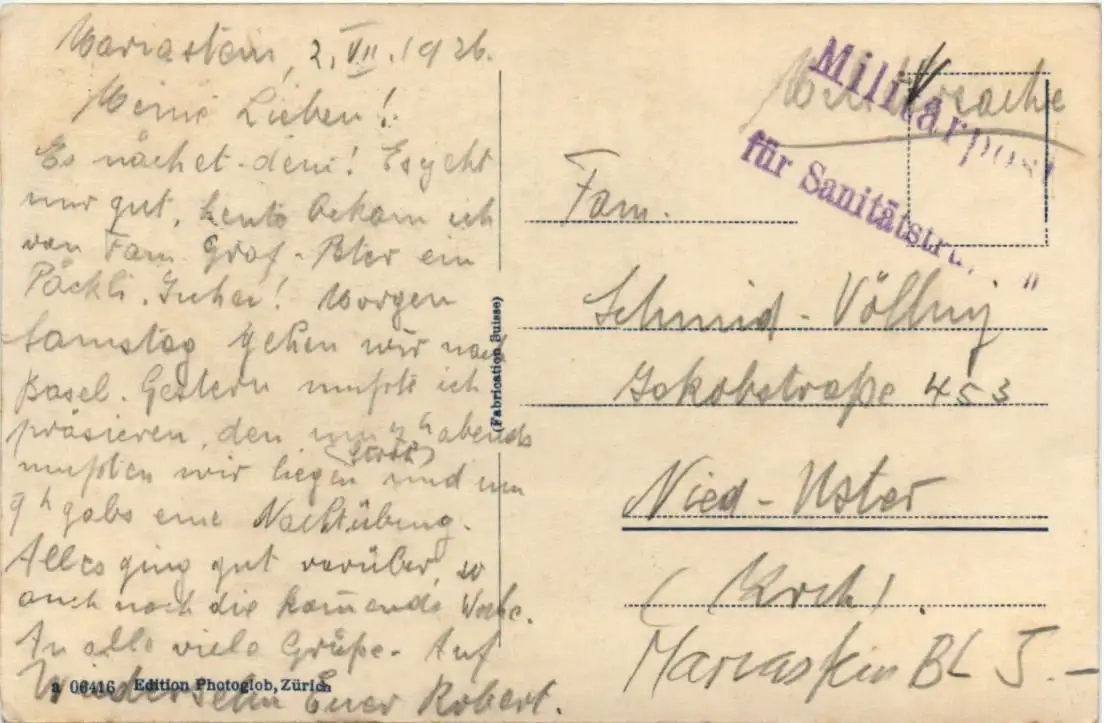 Mariastein, 2. VII. 1926.
Meine Lieben!
Es nächet dem! Es geht
mir gut, heute bekam ich
von Fam. Graf-Peter ein
Päckli. Juhei! Morgen
Samstag gehen wir nach
Basel. Gestern mußte ich
präsieren, den um h abends
(Stroh)
mußten wir liegen und um
9 h gabs eine Nachtübung.
Alles ging gut vorüber, so
auch noch die kom̅ende Woche.
An alle viele Grüße. Auf
Wiedersehn Euer Robert.
a 06416 Edition Photoglob, Zürich
(Fabrication Suisse)
Militärsache
Militärpost
für Sanitätstr
Fam.
Schmid-
Jakobstraße 453
Nied-Uster
(Zrch).